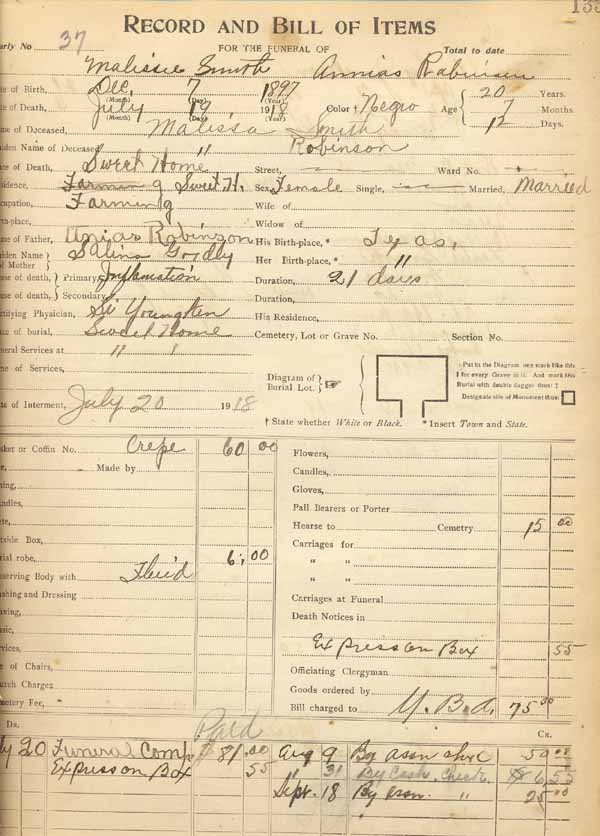 RECORD AND BILL OF ITEMS
arly No 37 FOR THE FUNERAL OF Total to date
Malissie Smith Annias Rabinson
te of Birth, Dec 7 1897 20 Years.
(Month) (Day) (Year)
te of Death, July 19, 1918 Color † Negro Age 7 Months
(Month) (Day) (Year)
me of Deceased, Malissa Smith 12 Days.
iden Name of Deceased, " Robinson
ce of Death, Sweet Home Street, Ward No.
sidence, Farming Sweet H. Sex, Female Single, Married, Married
cupation, Farming Wife of
rth-place, Widow of
me of Father, Anias Robinson His Birth-place,* Texas,
aiden Name of Mother Salina Her Birth-place,* "
use of death, Primary, Inflamation Duration, 21 days
use of death, Secondary Duration,
rtifying Physician, His Residence,
ce of burial, Sweet Home Cemetery, Lot or Grave No. Section No.
neral Services at " "
me of Services,
Diagram of Burial Lot.
Put in the Diagram one mark like this
I for every Grave in it. And mark this
Burial with double dagger thus: ‡
Designate site of Monument thus:
te of Interment, July 20 1918
† State whether White or Black. * Insert Town and State.
sket or Coffin No. Crepe 60 00 Flowers,
Made by Candles,
ning, Gloves,
ndles, Pall Bearers or Porter
ate, Hearse to Cemetry 15 00
utside Box, Carriages for
rial robe, 6,00 " "
eserving Body with Fluid " "
ashing and Dressing Carriages at Funeral
aving, Death Notices in
usic,
rvices, Express on Box 55
e of Chairs, Officiating Clergyman
urch Charges Goods ordered by
metery Fee, Bill charged to U. B. A. 75 00
Ds. Paid Cr.
ly 20 Funeral Comp $81.00 Aug 9 By assn 50 00
Express on Box 55 " 31 By Cash, Check. 6.55
Sept. 18 By assn. " 25 00